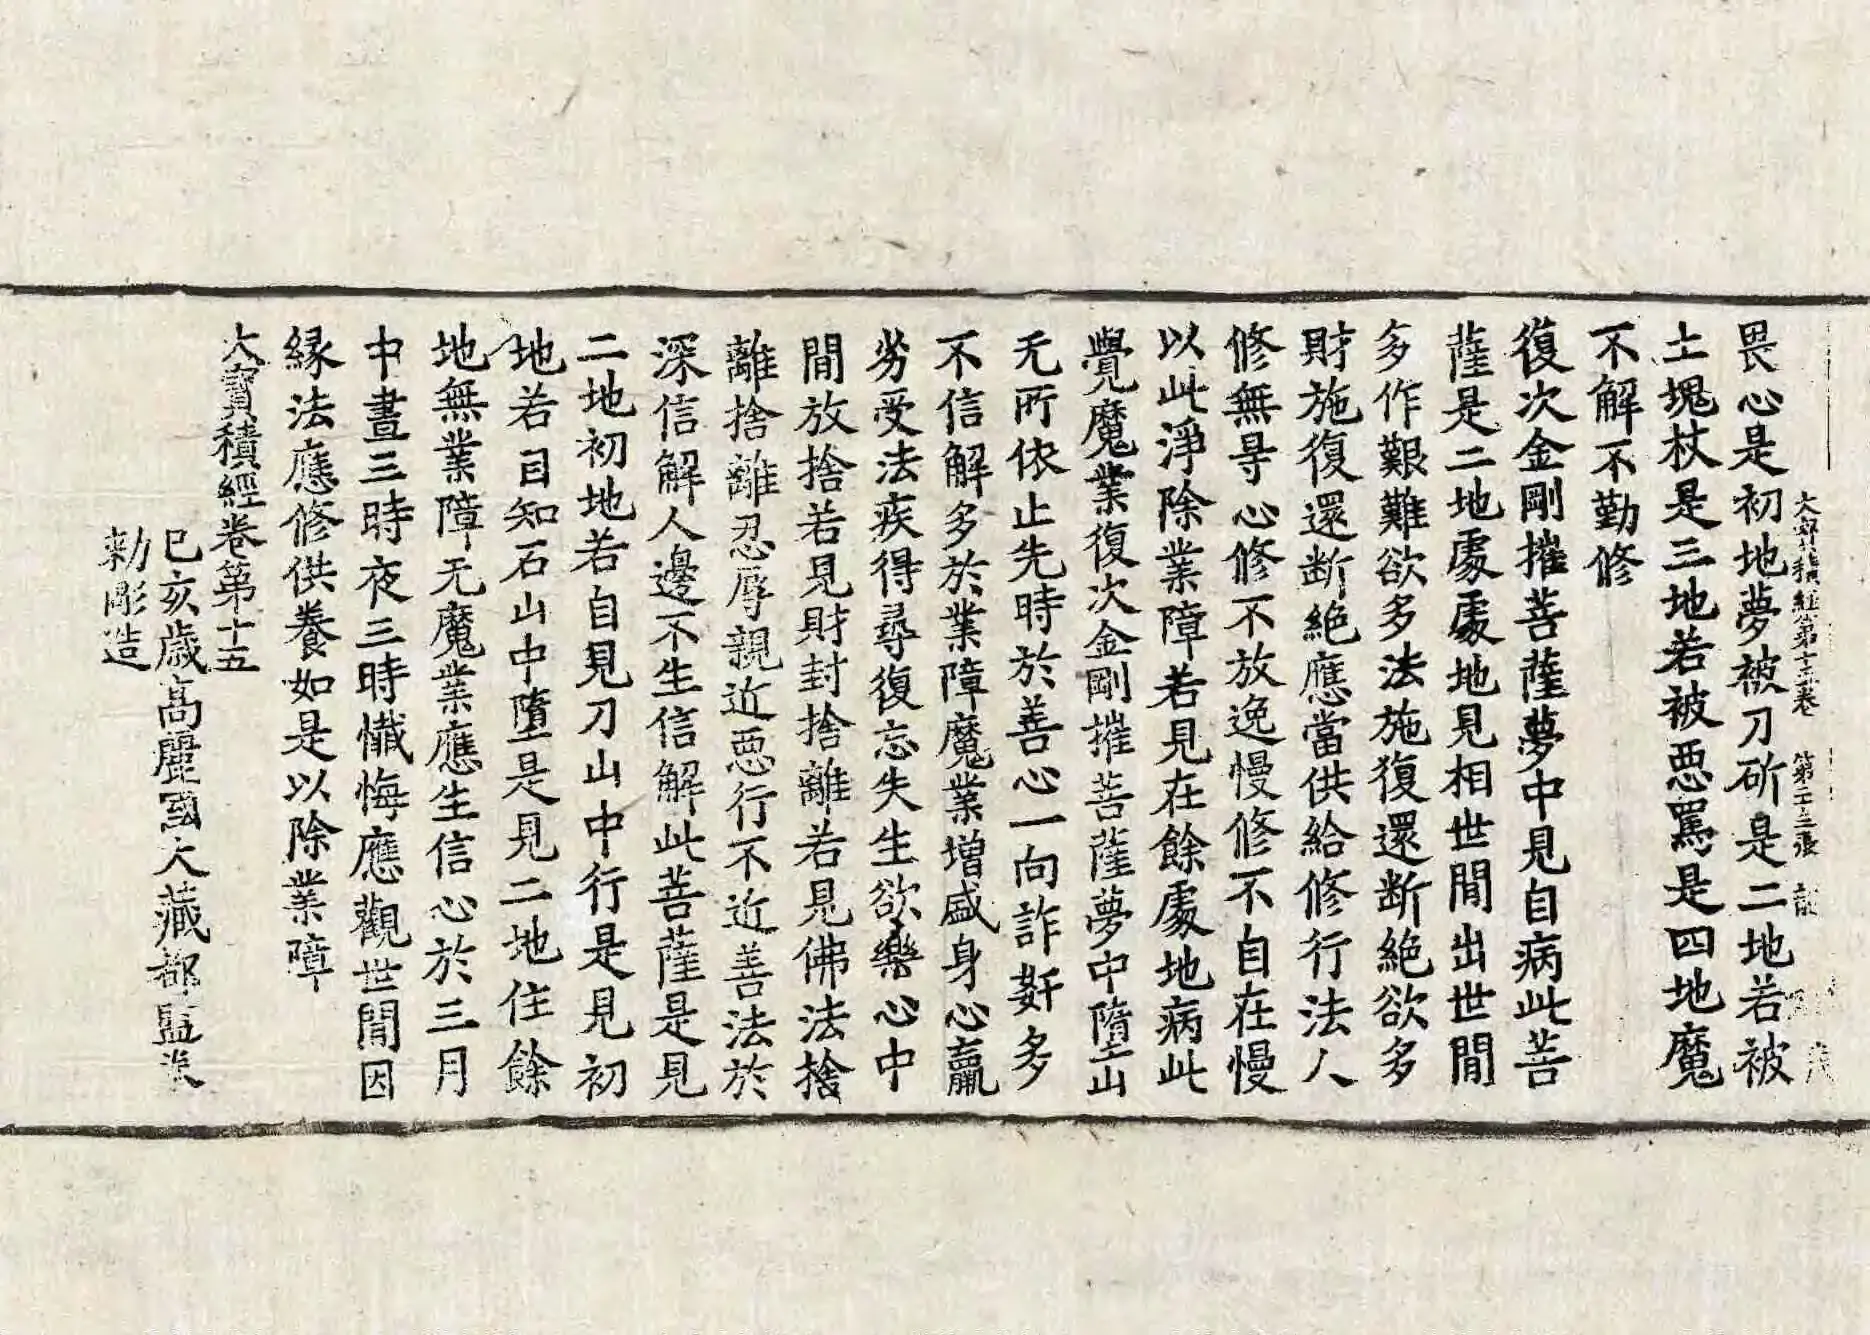 大寶積經第十五卷　第二十三張
畏心是初地夢被刀斫是二地若被
土塊杖是三地若被惡罵是四地魔
不解不勤修
復次金剛摧菩薩夢中見自病此菩
薩是二地處處地見相世間出世間
多作艱難欲多法施復還断絶欲多
財施復還断絶應當供給修行法人
修無㝵心修不放逸慢修不自在慢
以此淨除業障若見在餘處地病此
覺魔業復次金剛摧菩薩夢中墮山
无所依止先時於善心一向詐姧多
不信解多於業障魔業增盛身心羸
劣受法疾得尋復忘失生欲樂心中
間放捨若見財封捨離若見佛法捨
離捨離忍辱親近惡行不近善法於
深信解人邊不生信解此菩薩是見
二地初地若自見刀山中行是見初
地若自知石山中墮是見二地住餘
地無業障无魔業應生信心於三月
中晝三時夜三時懺悔應觀世間因
緣法應修供養如是以除業障
大寶積經卷第十五
己亥歲高麗國大藏都監奉
勅彫造